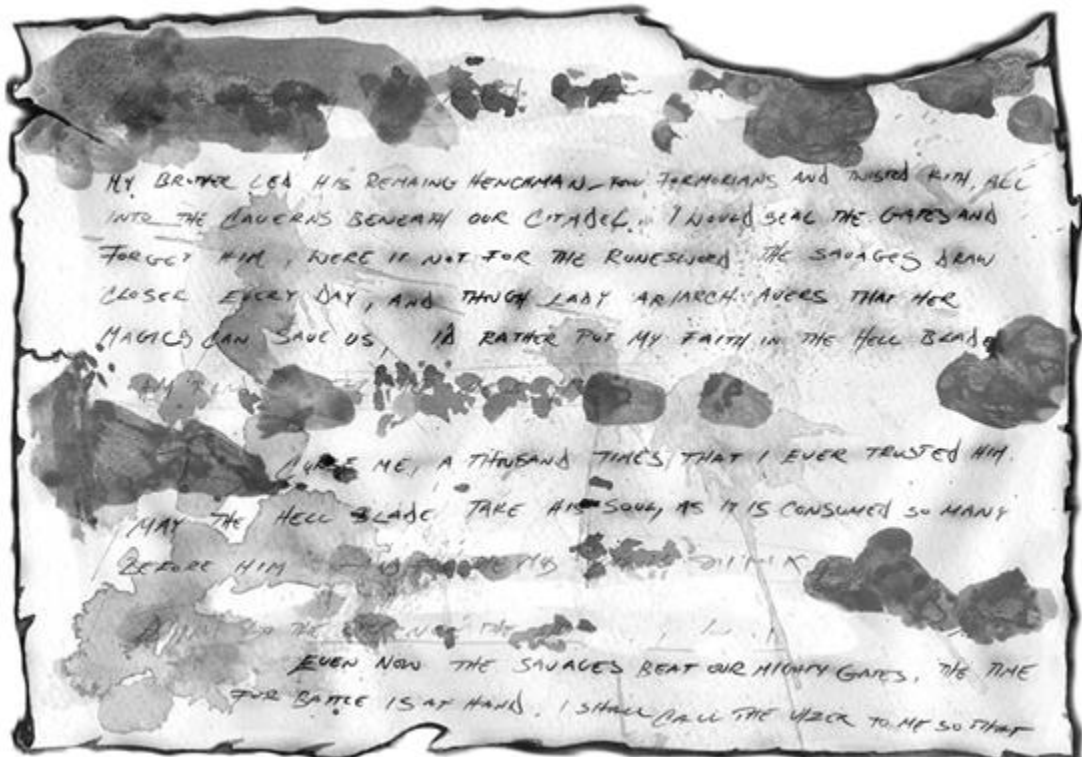 MY BROTHER LED HIS REMAING HENCHMAN FORMORIANS AND TWISTED KITH, ALL
INTO THE CAVERNS BENEATH OUR CITADEL. I WOULD SEAL THE GATES AND
FORGET HIM, WERE IT NOT FOR THE RUNESWORD. THE SAVAGES DRAW
CLOSER EVERY DAY, AND THOUGH LADY ARIARCH AVERS THAT HER
MAGICS CAN SAVE US, I'D RATHER PUT MY FAITH IN THE HELL BLADE
CURSE ME, A THOUSAND TIMES THAT I EVER TRUSTED HIM.
MAY THE HELL BLADE TAKE HIS SOUL, AS IT IS CONSUMED SO MANY
BEFORE HIM
THE
EVEN NOW THE SAVAGES BEAT OUR MIGHTY GATES. THE TIME
FOR BATTLE IS AT HAND. I SHALL CALL THE VIZER TO ME SO THAT